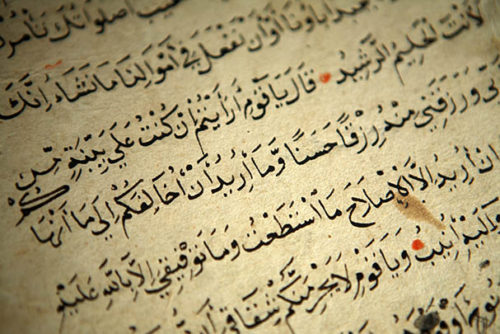 أصلواتك تأمر
يعبد اباؤنا أو أن نفعل في أموالنا ما نشاء إنك
لأنت الحليم الرشيد قال يا قوم أرأيتم إن كنت على بينة من
ورزقني منه رزقا حسنا وما أريد أن أخالفكم إلى ما أنهاكم
إن أريد إلا الإصلاح ما استطعت وما توفيقي إلا بالله عليه
وإليه أنيب ويا قوم لا يجرمنكم شقاقي أن